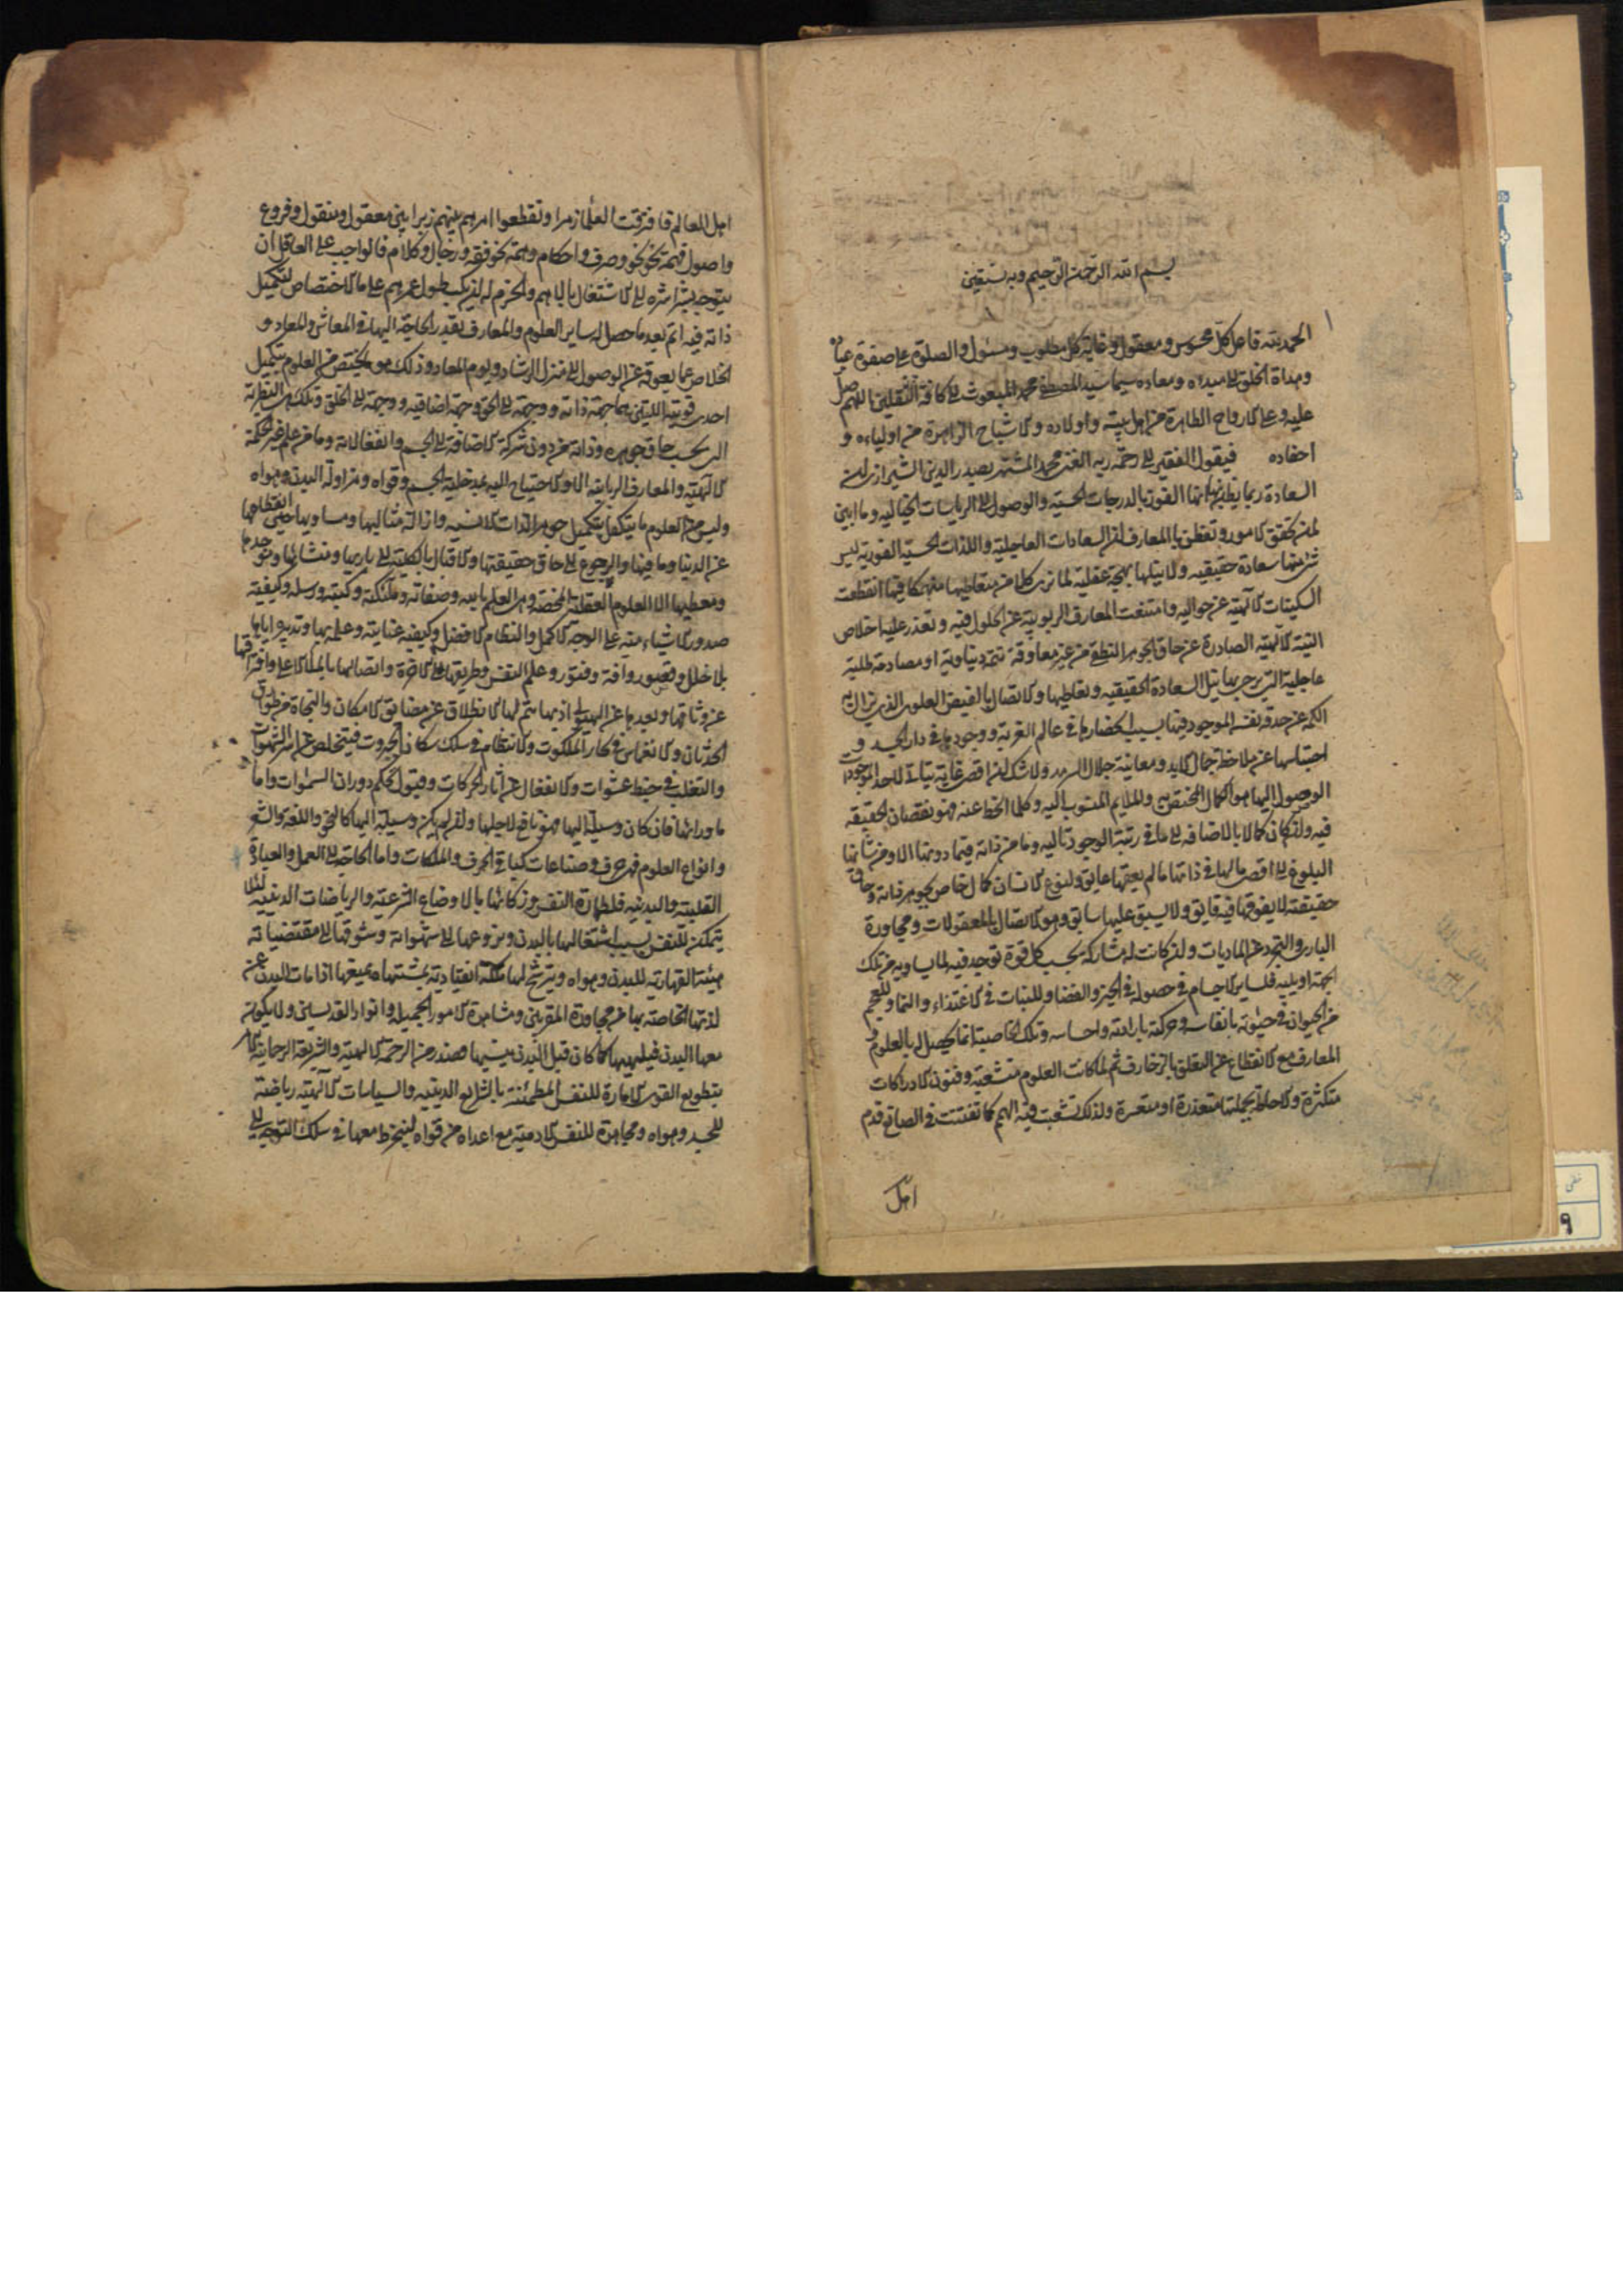 بسم الله الرحمن الرحيم وبه نستعين
الحمد لله فاعل كل محسوس ومعقول وغاية كل مطلوب ومسئول والصلوة على صفوة عباده
وهداة الخلق الى مبدءه ومعاده سيما سيد المصطفى محمد المبعوث الى كافة الثقلين اللهم صل
عليه وعلى الارواح الطاهرة من اهل بيته واولاده والاشباح الزاهرة من اولياءه و
احفاده فيقول الفقير الى رحمة ربه الغنى محمد المشتهر بصدر الدين الشيرازى ان
السعادة ربما يظن بها انها الفوز بالدرجات الحسية والوصول الى الرياسات الخيالية وما ابين
لمن تحقق الامور وتفطن بالمعارف ان السعادات العاجلية واللذات الحسية الفورية ليس
شئ منها سعادة حقيقيه ولا ينيلها بهجة عقلية لما نرى كلا من متعاطيها منهمكا فيها انقطعت
السكينات الالهية عن حواليه وامتنعت المعارف الربوبية عن الحلول فيه وتعذر عليه اخلاص
النية الالهية الصادرة عن حاق الجوهر النطقى من غير معاوقة همة دنياوية او مصادمة طلبة
عاجلية التى يرجى بها نيل السعادة الحقيقيه وتعاطيها والاتصال بالفيض العلوى الذى يزال به
الكمه عن حدقة نفسه الموجود فيها بسبب انحصارها فى عالم الغربة ووجودها فى دار الجسد و
احتباسها عن ملاحظة جمال الابد ومعاينة جلال السرمد ولا شك ان اقصى غاية يتاتى لاحد الموجودات
الوصول اليها هو الكمال المختص به والملايم المنسوب اليه وكلما انحط عنه فهو نقصان بالحقيقة
فيه وان كان كمالا بالاضافه الى ما فى رتبة الوجود تاليه وما من دابة فيما دونها الا ومن شانها
البلوغ الى اقصى مالها فى ذاتها ما لم يعقها عايق ولنوع الانسان كمال خاص بجوهر ذاته وحاق
حقيقته لا يفوقها فيه فايق ولا يسبق عليها سابق وهو الاتصال بالمعقولات ومجاورة
البارى والتجرد عن الماديات وان كانت له مشاركة بحسب كل قوة توجد فيه لما يساويه من تلك
الجهة او يليه فلساير الاجسام فى حصوله فى الحيز والفضا وللنبات فى الاغتذاء والنما وللعجم
من الحيوان فى حيوته بانفاسه وحركته بارادته واحساسه وتلك الخاصية انما تحصل له بالعلوم و
المعارف مع الانقطاع عن التعلق بالزخارف ثم لما كانت العلوم متشعبة وفنون الادراكات
متكثرة والاحاطة بجملتها متعذرة او متعسرة ولذلك تشعبت فيه الهمم كما تفننت فى الصنايع قدم
اهل
اهل العالم فافترقت العلماء زمرا وتقطعوا امرهم بينهم زبرا بين معقول ومنقول وفروع
واصول فهمة نحو نحو وصرف واحكام وهمة نحو فقه ورجال وكلام فالواجب على العاقل ان
يتوجه بشراشره الى الاشتغال بالاهم والحزم له ان يكب طول عمره على ما الاختصاص لتكميل
ذاته فيه اتم بعد ما حصل له ساير العلوم والمعارف بقدر الحاجة اليها فى المعاش والمعاد و
الخلاص عما يعوقه عن الوصول الى منزل الرشاد ويوم المعاد وذلك هو ما يختص من العلوم بتكميل
احدى قوتيه اللتين هما جهة ذاته ووجهه الى الحق وجهة اضافيه ووجهه الى الخلق وتلك هى النظرية
التى بحسب حاق جوهره وذاته من دون شركة الاضافة الى الجسم وانفعالاته وما من علم غير الحكمة
الالهية والمعارف الربانيه الا والاحتياج اليه بمدخلية الجسم وقواه ومزاولة البدن وهواه
وليس من العلوم ما يتكفل بتكميل جوهر الذات الانسيه وازالة مثالبها ومساويها حين انقطاعها
عن الدنيا وما فيها والرجوع الى حاق حقيقتها والاقبال بالكلية الى باريها ومنشئها وموجدها
ومعطيها الا العلوم العقلية المحضة وهى العلم بالله وصفاته وملئكته وكتبه ورسله وكيفية
صدور الاشياء منه على الوجه الاكمل والنظام الافضل وكيفية عنايته وعلمه بها وتدبيره اياها
بلا خلل وقصور وافة وفتور وعلم النفس وطريقها الى الاخرة واتصالها بالملاء الاعلى وافتراقها
عن وثاقها وبعدها عن الهيولى اذ بها يتم لها الانطلاق عن مضايق الامكان والنجاة من طوارق
الحدثان والانغماس فى بحار الملكوت والانتظام فى سلك سكان الجبروت فيتخلص عن اسر الشهوات
والتقلب فى خبط عشوات والانفعال عن اثار الحركات وقبول تحكم دوران السموات واما
ما ورائها فان كان وسيلة اليها فهو نافع لاجلها وان لم يكن وسيلة اليها كالنحو واللغة والشعر
وانواع العلوم فهى حرف وصناعات كباقى الحرف والملكات واما الحاجة الى العمل والعبادة
القلبية والبدنيه فلطهارة النفس وزكائها بالاوضاع الشرعية والرياضات البدنيه لئلا
يتمكن للنفس بسبب اشتغالها بالبدن ونزوعها الى شهواته وشوقها الى مقتضياته
هيئة انقهارية للبدن وهواه ويترشح لها ملكة انقيادية لمشتهاه يمنعها اذا مات البدن عن
لذتها الخاصة بها من مجاورة المقربين ومشاهدة الامور الجميلة وانوار القدسيين ولا يكون
معها البدن فيلهيها كما كان قبل البدن ينسيها فصدر من الرحمة الالهية والشريعة الرحمانية الامر
بتطويع القوى الامارة للنفس المطمئنة بالشرايع الدينيه والسياسات الالهية رياضة
للجسد وهواه ومجاهدة للنفس الادمية مع اعداه من قواه لينخرط معها فى سلك التوجه الى